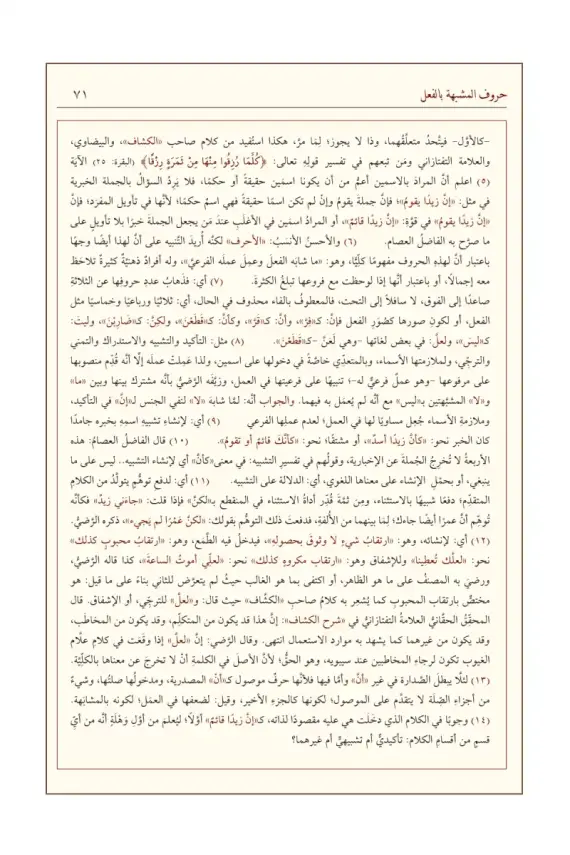 حروف المشبهة بالفعل ٧١
-كالأوَّل- فيتَّحدُ متعلَّقُهما، وذا لا يجوز؛ لِمَا مرَّ، هكذا استُفيد من كلام صاحب «الكشاف»، والبيضاوي،
والعلامة التفتازاني ومَن تبعهم في تفسير قوله تعالى: ﴿كُلَّمَا رُزِقُوا مِنْهَا مِنْ ثَمَرَةٍ رِزْقًا﴾ (البقرة: ٢٥) الآية
(٥) اعلم أنَّ المرادَ بالاسمين أعمُّ من أن يكونا اسمَين حقيقةً أو حكمًا، فلا يَرِدُ السؤالُ بالجملة الخبرية
في مثل: «إنَّ زيدًا يقومُ»؛ فإنَّ جملةَ يقومُ وإنْ لم تكن اسمًا حقيقةً فهي اسمٌ حكمًا؛ لأنَّها في تأويل المفرَد؛ فإنَّ
«إنَّ زيدًا يقومُ» في قوَّةِ: «إنَّ زيدًا قائمٌ»، أو المرادُ اسمَين في الأغلَبِ عندَ مَن يجعل الجملةَ خبرًا بلا تأويلٍ على
ما صرَّح به الفاضلُ العصام. (٦) والأحسنُ الأنسَبُ: «الأحرف» لكنَّه أُريدَ التَّنبيه على أنَّ لهذا أيضًا وجهًا
باعتبار أنَّ لهذِهِ الحروف مفهومًا كلِّيًّا، وهو: «ما شابَهَ الفعلَ وعمِلَ عملَه الفرعيَّ»، وله أفرادٌ ذهنيَّةٌ كثيرةٌ تلاحَظ
معه إجمالًا، أو باعتبار أنَّها إذا لوحظت مع فروعها تبلغُ الكثرةَ. (٧) أي: فذَهابُ عددِ حروفِها عن الثلاثةِ
صاعدًا إلى الفوق، لا سافلًا إلى التحت، فالمعطوفُ بالفاء محذوف في الحال، أي: ثلاثيًّا ورباعيًّا وخماسيًّا مثل
الفعل، أو لكونِ صورها كصُوَرِ الفعل فإنَّ: كـ«فِرَّ»، وأنَّ: كـ«فَرَّ»، وكأنَّ: كـ«قَطَعْنَ»، ولكنَّ: كـ«ضَارِبْنَ»، وليتَ:
كـ«ليسَ»، ولعلَّ: في بعض لغاتها -وهي لَعَنَّ- كـ«قَطَعْنَ». (٨) مثل: التأكيد والتشبيه والاستدراك والتمني
والترجّي، ولملازمتها الأسماء، وبالمتعدِّي خاصَّةً في دخولها على اسمين، ولذا عَمِلتْ عملَه إلَّا أنَّه قُدِّم منصوبها
على مرفوعها -وهو عملٌ فرعيٌّ له-؛ تنبيهًا على فرعيتها في العمل، وزيَّفَه الرَّضيُّ بأنَّه مشتركٌ بينها وبين «ما»
و«لا» المشبَّهتين بـ«ليس» مع أنَّه لم يُعمَل به فيهما. والجواب أنَّه: لمَّا شابَهَ «لا» لنفي الجنس لـ«إنَّ» في التأكيد،
وملازمةِ الأسماء جُعِل مساويًا لها في العمل؛ لعدم عملِها الفرعي (٩) أي: لإنشاءِ تشبيهِ اسمِهِ بخبره جامدًا
كان الخبر نحو: «كأنَّ زيدًا أسدٌ»، أو مشتقًّا؛ نحو: «كأنَّكَ قائمٌ أو تقومُ». (١٠) قال الفاضلُ العصامُ: هذه
الأربعةُ لا تُخرِجُ الجُملةَ عن الإخبارية، وقولُهم في تفسيرِ التشبيه: في معنى«كأنَّ» أي لإنشاء التشبيه.. ليس على ما
ينبغي، أو بحمْلِ الإنشاء على معناها اللغوي، أي: الدلالة على التشبيه. (١١) أي: لدفع توهُّم يتولَّدُ من الكلامِ
المتقدِّمِ؛ دفعًا شبيهًا بالاستثناء، ومِن ثمَّةَ قُدِّر أداةُ الاستثناء في المنقطع بـ«لكنَّ» فإذا قلتَ: «جاءَني زيدٌ» فكأنَّه
تُوهِّم أنَّ عمرًا أيضًا جاءك؛ لِمَا بينهما من الأُلفةِ، فدفعتَ ذلك التوهُّم بقولك: «لكنَّ عَمْرًا لم يَجيء»، ذكره الرَّضيُّ.
(١٢) أي: لإنشائه، وهو: «ارتقابُ شيءٍ لا وثوقَ بحصوله»، فيدخلُ فيه الطَّمَع، وهو: «ارتقابُ محبوبٍ كذلك»
نحو: «لعلَّك تُعطينا» وللإشفاق وهو: «ارتقاب مكروهٍ كذلك» نحو: «لعلّي أموتُ الساعةَ»، كذا قاله الرَّضيُّ،
ورضيَ به المصنفُ على ما هو الظاهر، أو اكتفى بما هو الغالب حيثُ لم يتعرَّض للثاني بناءً على ما قيل: هو
مختصٌّ بارتقاب المحبوبِ كما يُشعِر به كلامُ صاحبِ «الكشَّاف» حيث قال: و«لعلَّ» للترجّي، أو الإشفاق. قال
المحقِّقُ الحقَّانيُّ العلامةُ التفتازانيُّ في «شرح الكشاف»: إنَّ هذا قد يكون من المتكلِّمِ، وقد يكون من المخاطَب،
وقد يكون من غيرهما كما يشهد به موارد الاستعمال انتهى. وقال الرضي: إنَّ «لعلَّ» إذا وقَعَت في كلامِ علَّام
الغيوب تكون لرجاءِ المخاطبين عند سيبويه، وهو الحقُّ؛ لأنَّ الأصلَ في الكلمةِ أنْ لا تخرجَ عن معناها بالكلِّيَّة.
(١٣) لئلَّا يبطلَ الصَّدارة في غير «أنَّ» وأمَّا فيها فلأنَّها حرفُ موصول كـ«أنْ» المصدرية، ومدخولُها صلتُها، وشيءٌ
من أجزاءِ الصِّلَة لا يتقدَّم على الموصول؛ لكونها كالجزءِ الأخير، وقيل: لضعفها في العمَل؛ لكونه بالمشابَهة.
(١٤) وجوبًا في الكلام الذي دخَلَت هي عليه مقصودًا لذاته، كـ«إنَّ زيدًا قائمٌ» أوَّلاً؛ ليُعلمَ من أوَّلِ وَهْلَةٍ أنَّه من أيِّ
قسمٍ من أقسامِ الكلام: تأكيديٌّ أم تشبيهيٌّ أم غيرهما؟